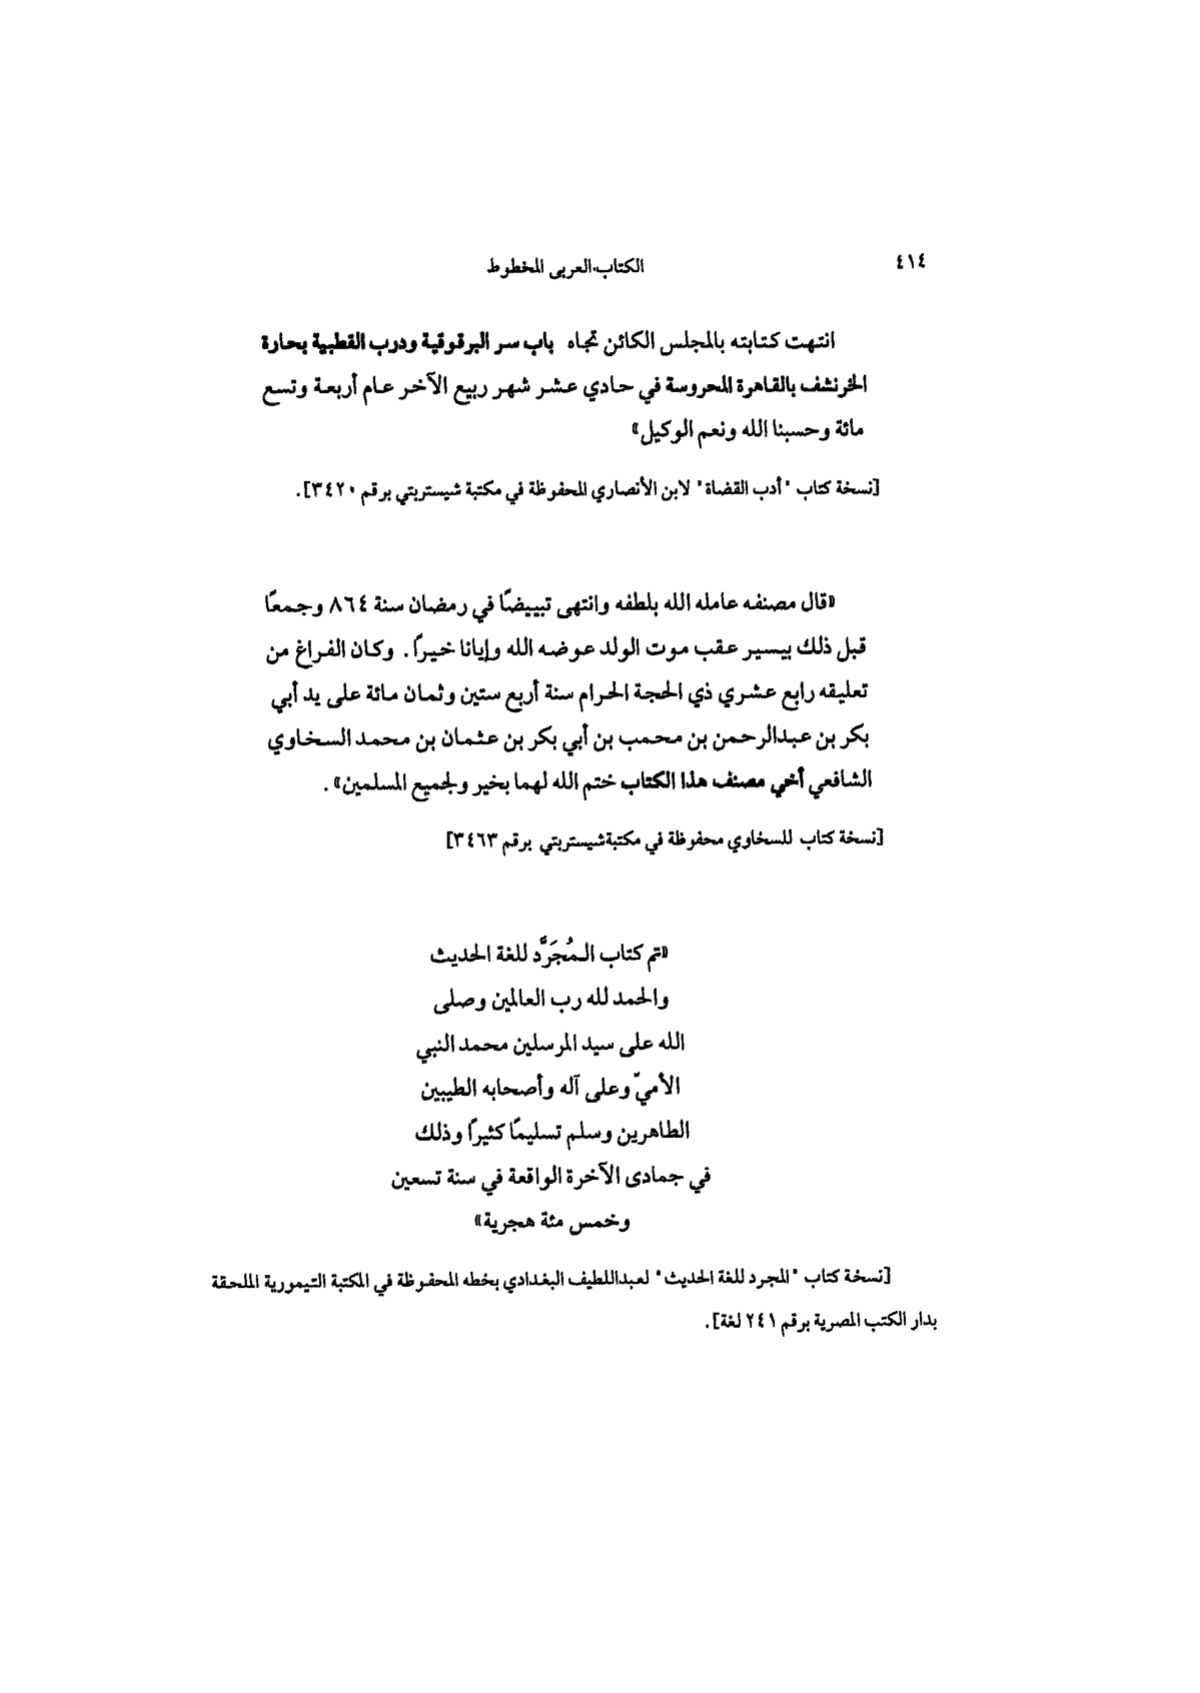 ٤١٤
الكتاب العربى المخطوط
انتهت كتابته بالمجلس الكائن تجاه باب سر البرقوقية ودرب القطبية بحارة
الخرنشف بالقاهرة المحروسة في حادي عشر شهر ربيع الآخر عام أربعة وتسع
مائة وحسبنا الله ونعم الوكيل»
[نسخة كتاب "أدب القضاة" لابن الأنصاري المحفوظة في مكتبة شيستربتي برقم ٣٤٢٠].
«قال مصنفه عامله الله بلطفه وانتهى تبييضًا في رمضان سنة ٨٦٤ وجمعًا
قبل ذلك بيسير عقب موت الولد عوضه الله وإيانا خيراً. وكان الفراغ من
تعليقه رابع عشري ذي الحجة الحرام سنة أربع ستين وثمان مائة على يد أبي
بكر بن عبدالرحمن بن محمب بن أبي بكر بن عثمان بن محمد السخاوي
الشافعي أخي مصنف هذا الكتاب ختم الله لهما بخير ولجميع المسلمين».
[نسخة كتاب للسخاوي محفوظة في مكتبةشيستربتي برقم ٣٤٦٣]
«تم كتاب الـمُجَرَّد للغة الحديث
والحمد لله رب العالمين وصلى
الله على سيد المرسلين محمد النبي
الأميّ وعلى آله وأصحابه الطيبين
الطاهرين وسلم تسليمًا كثيرًا وذلك
في جمادى الآخرة الواقعة في سنة تسعين
وخمس مئة هجرية»
[نسخة كتاب "المجرد للغة الحديث" لعبداللطيف البغدادي بخطه المحفوظة في المكتبة التيمورية الملحقة
بدار الكتب المصرية برقم ٢٤١ لغة].